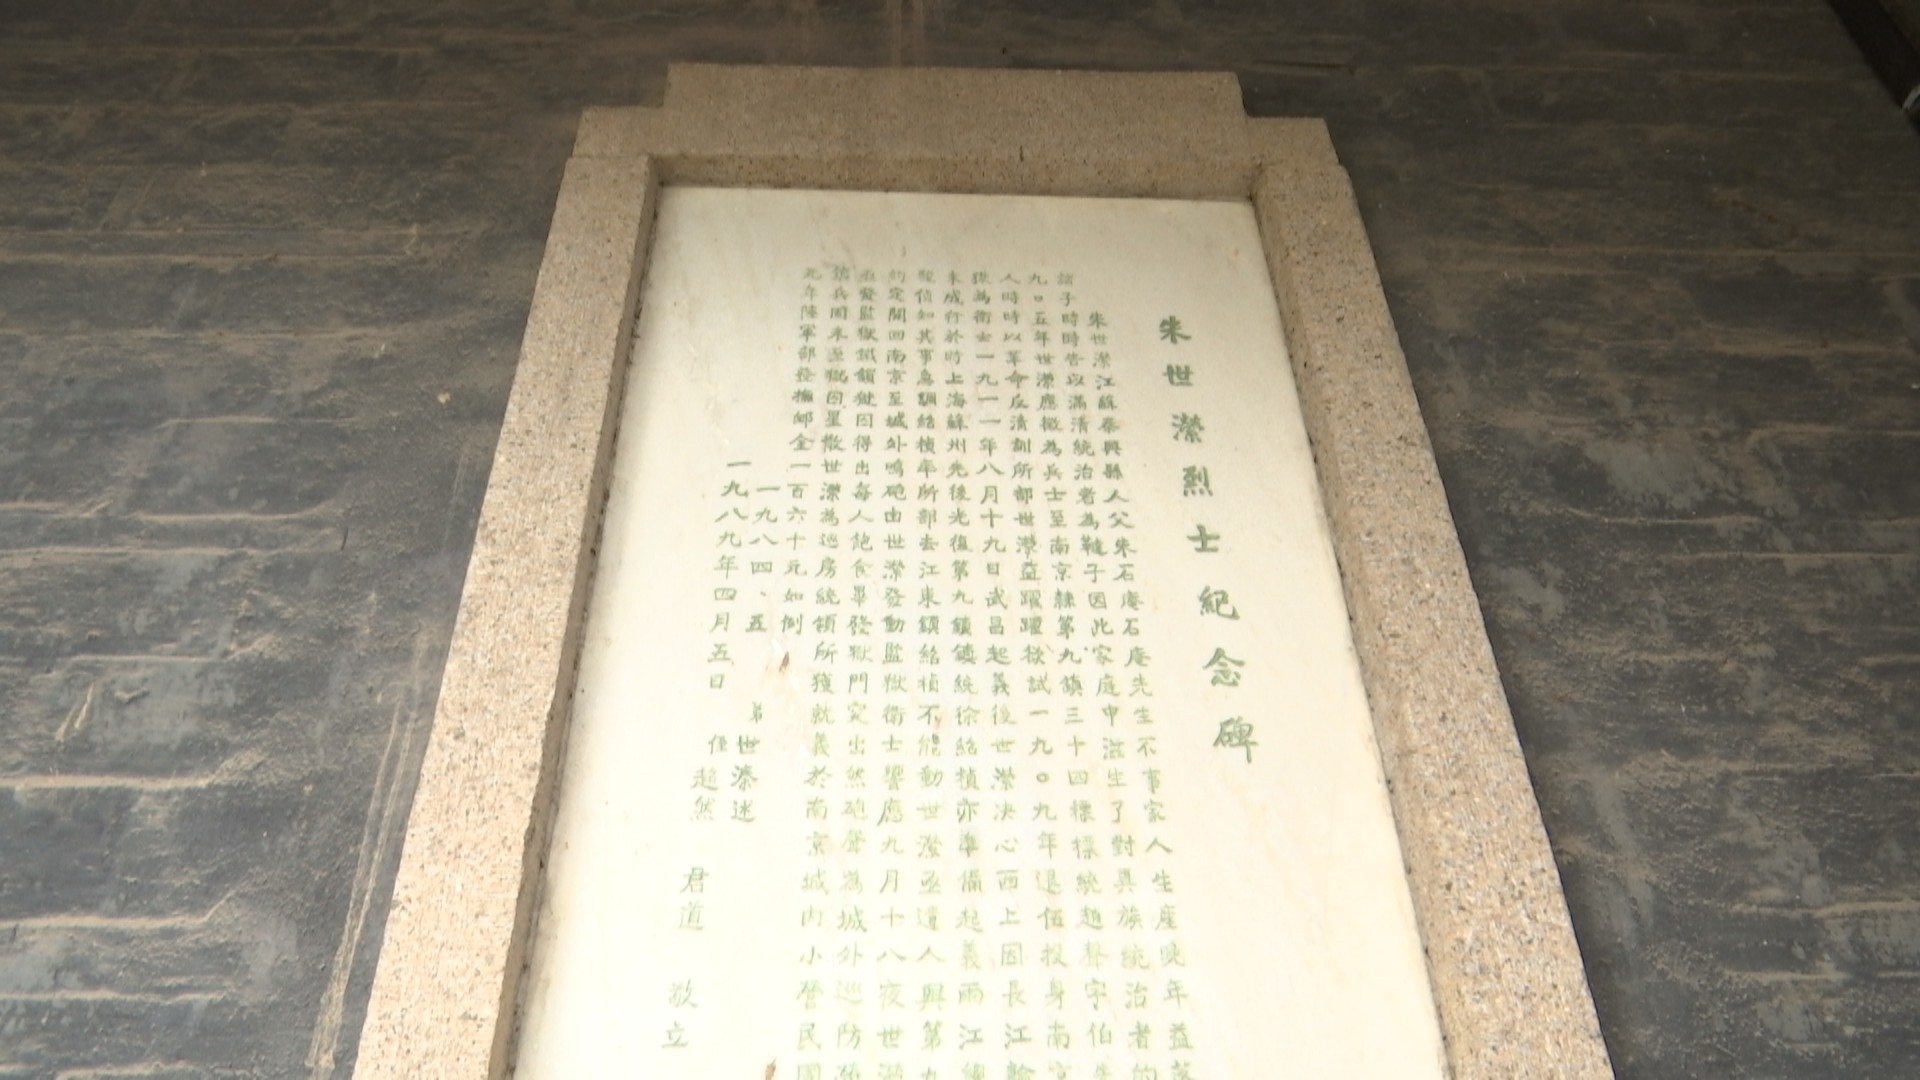 朱世濚烈士紀念碑
朱世濚江蘇泰興縣人父朱石庵石庵先生不事家人生産晚年益落
諸子時時告以滿清統治者為韃子因此家庭中滋生了對異族統治者的
九〇五年世濚應徵為兵士至南京隸第九鎮三十四標標統趙聲字伯先
人時時以革命反清訓所部世濚益躍躍欲試一九〇九年退伍投身南京
獄為衛士一九一一年八月十九日武昌起義後世濚決心西上因長江輪
未成行於時上海蘇州先後光復第九鎮鎮統徐紹楨亦準備起義兩江總
偵知其事急調紹楨率所部去江東鎮紹楨不能動世濚亟遣人與第九
約定開回南京至城外鳴砲由世濚發動監獄衛士響應九月十八夜世濚
發監獄鐵鎖獄囚得出每人飽食畢發獄門突出然砲聲為城外巡防
兵固未至獄囚星散世濚為巡房統領所獲就義於南京城內小營民國
元年陸軍部發撫卹金一百六十元如例
一九八四、五 弟世溱述
一九八九年四月五日 侄超然 君道 敬立